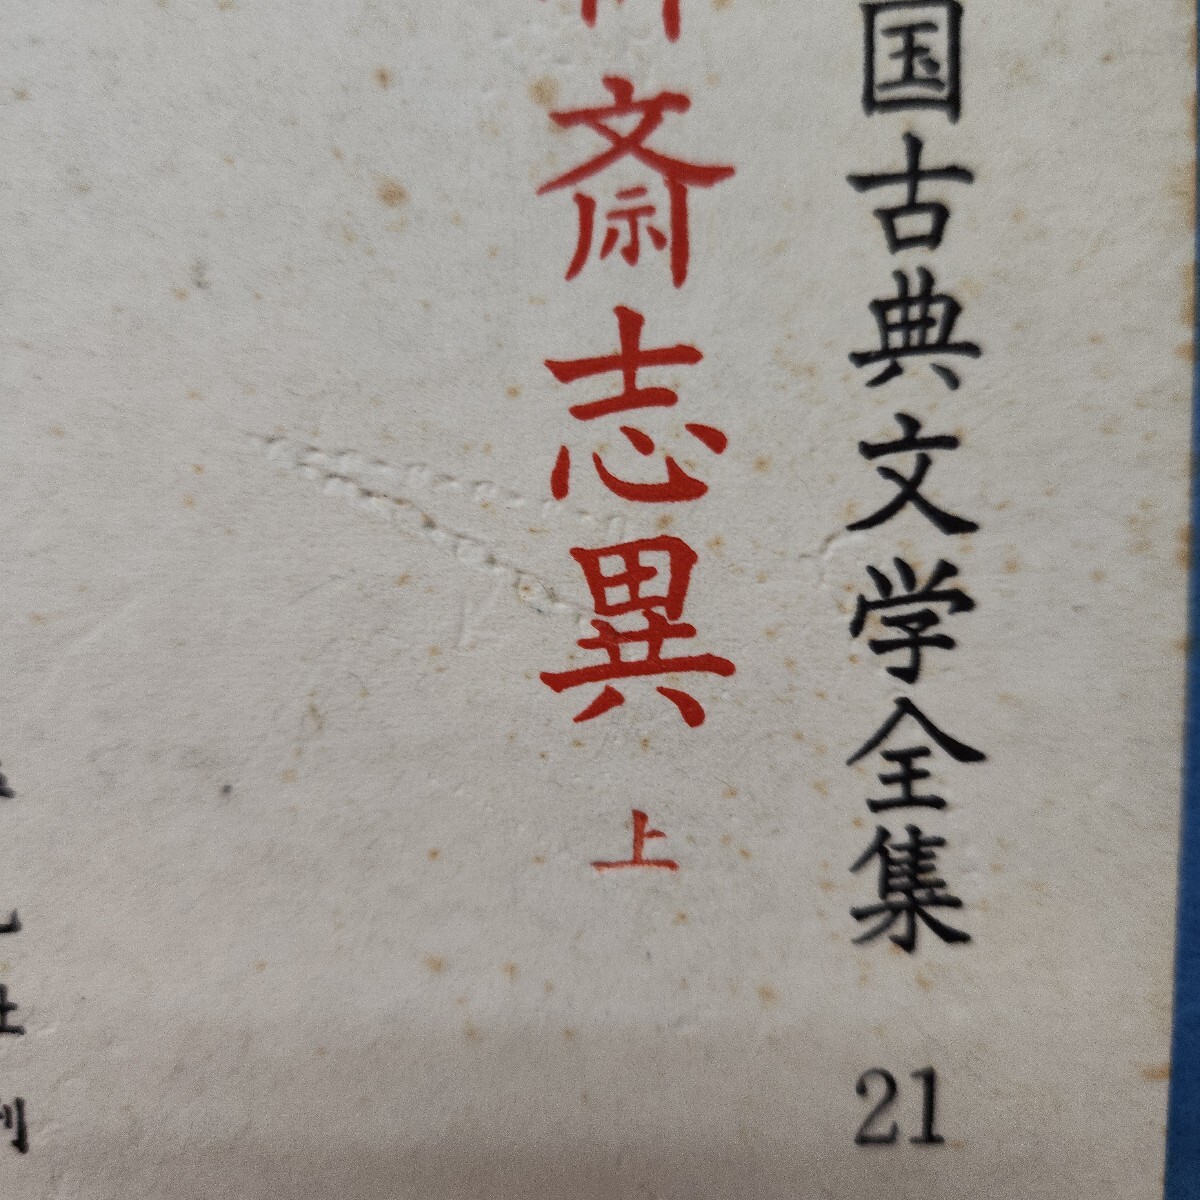 国古典文学全集 21
斎志異 上
社刊